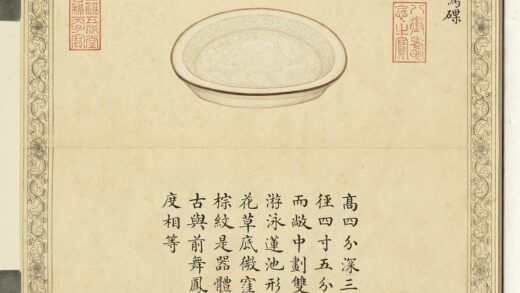 碟
八徵耄
念之寶
高四分深三
徑四寸五分
而敞中劃雙
游泳蓮池形
花草底微窪
棕紋是器體
古與前舞鳳
度相等